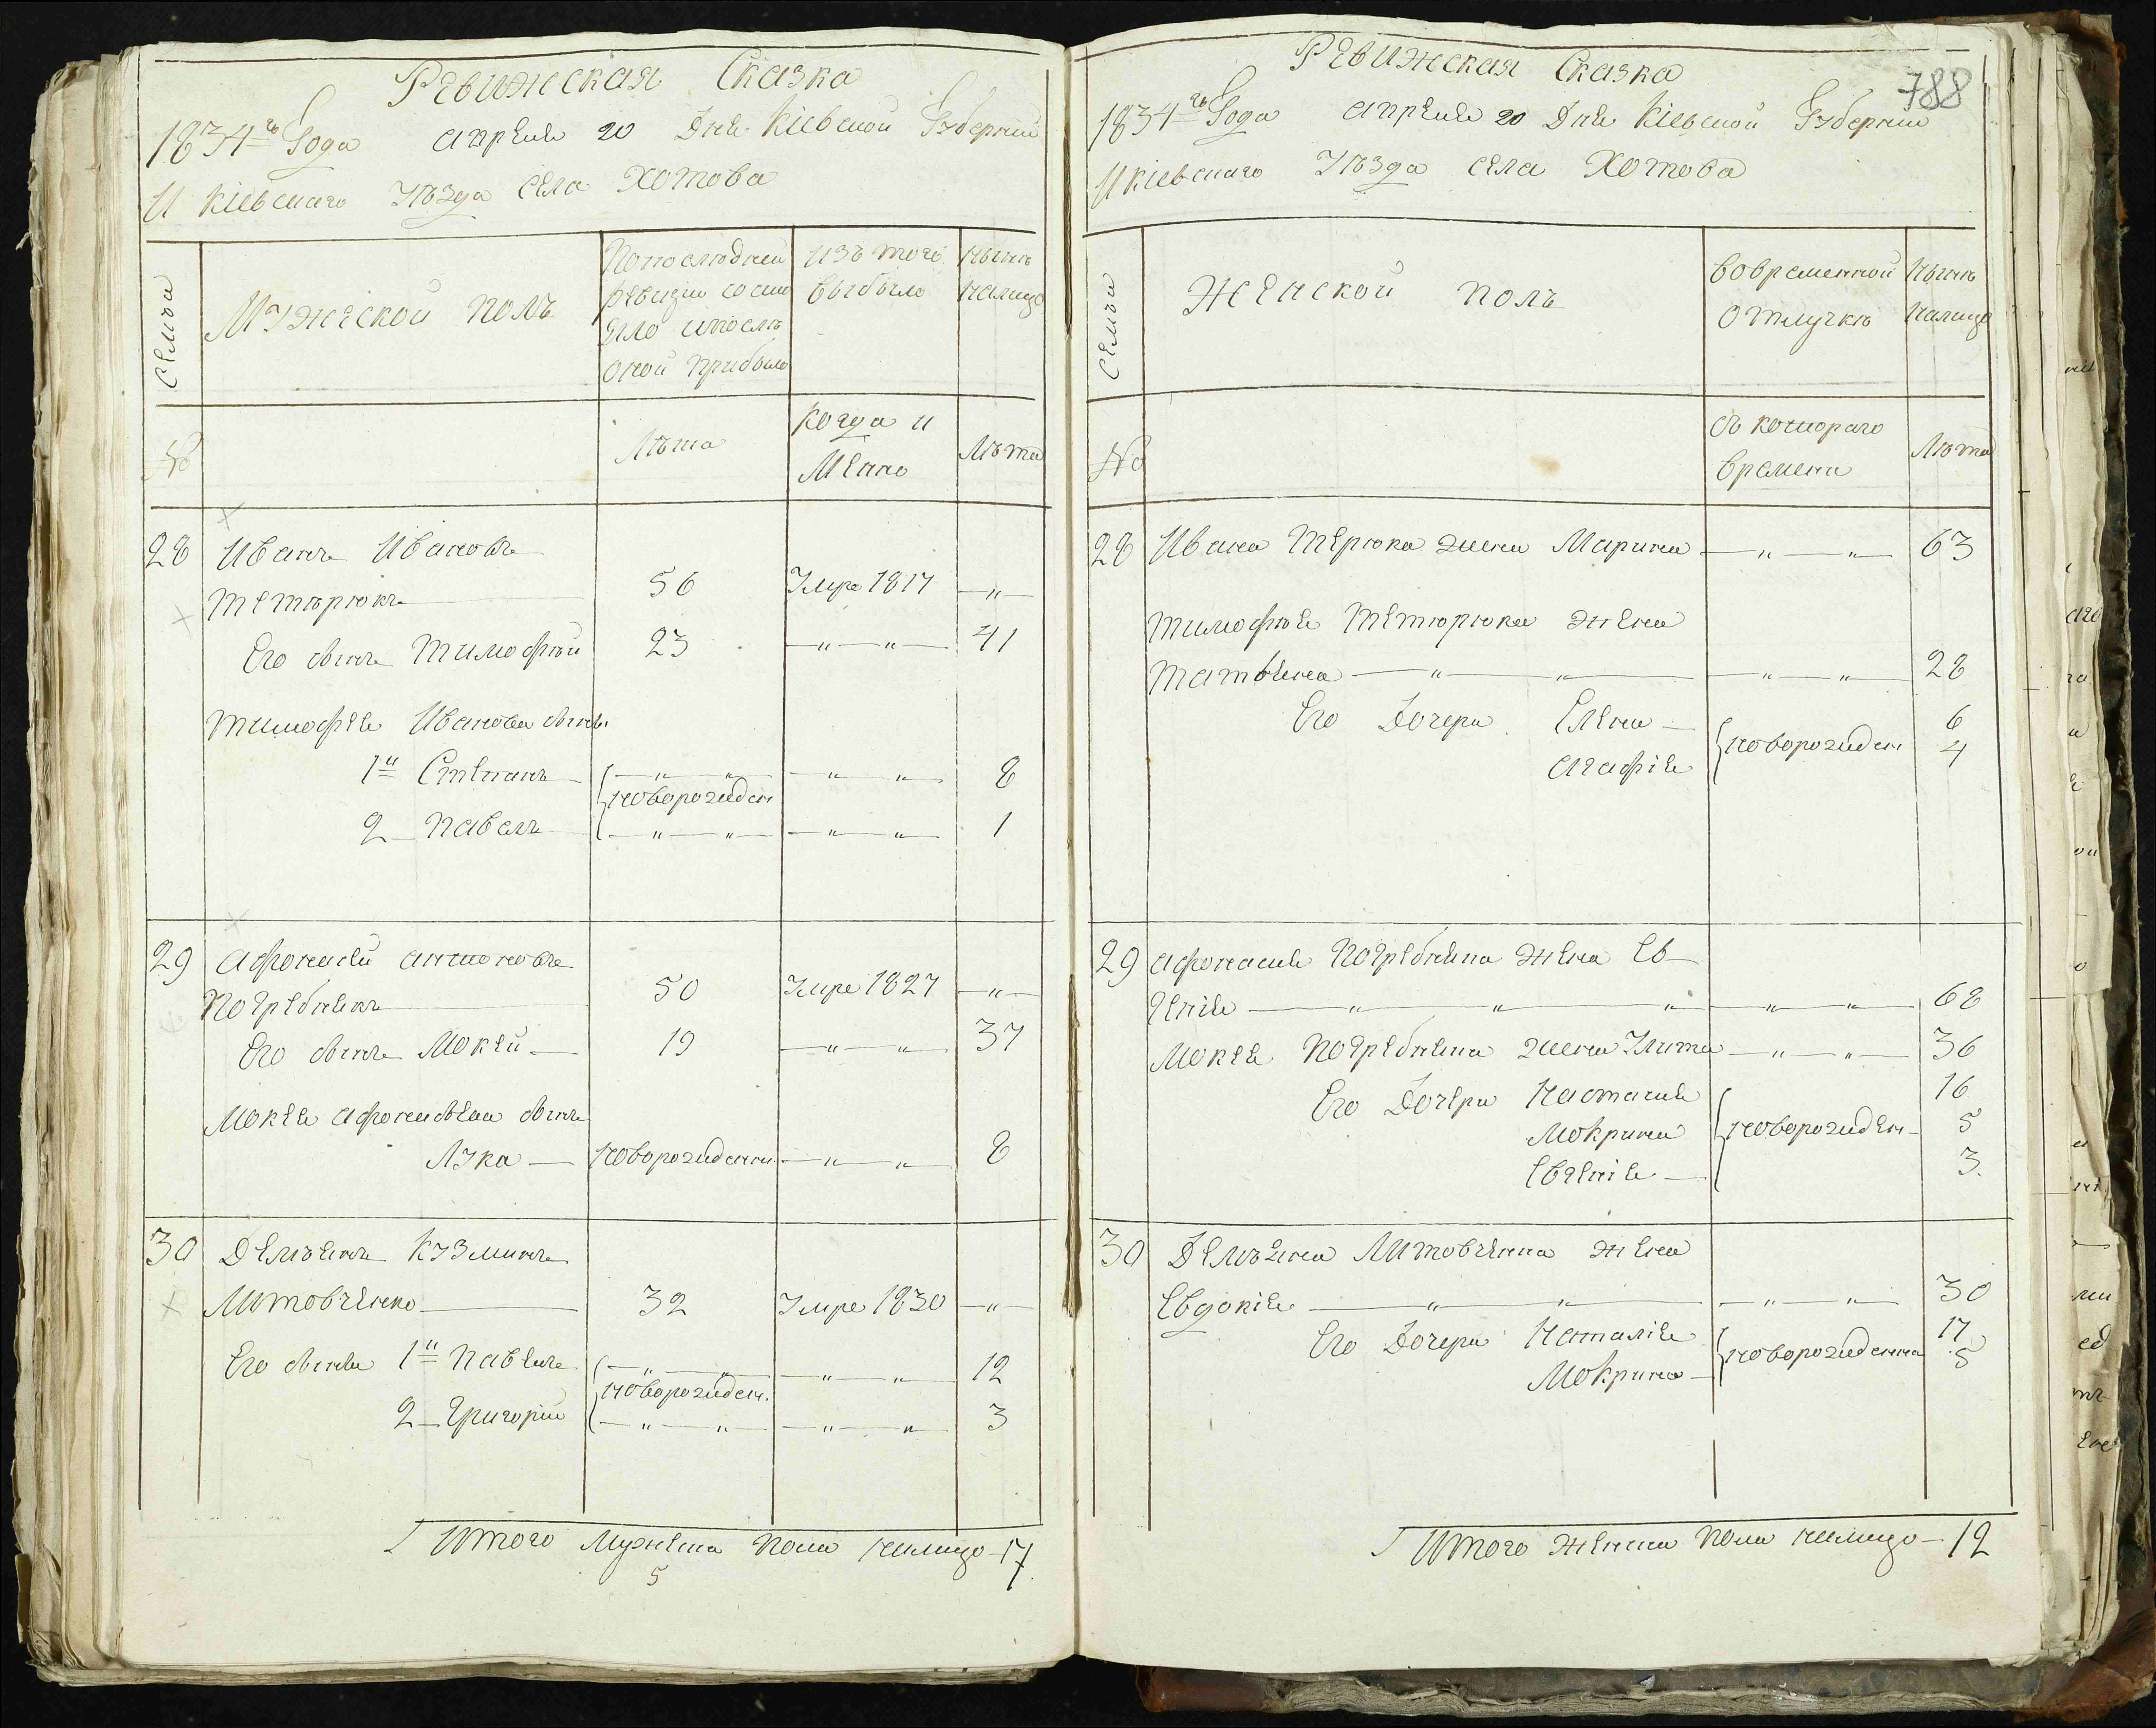 Ревижская Сказка
1834го Года апреля 20 Дня Кіевской Губерніи
И Кіевскаго Уѣзда Села Хотова
Семьи
Мужеской полъ
По последней
ревизіи состо
яло ипосле
оной прибыло
изъ того
выбыло
ныне
налицо
№
Лѣта
Когда и
Менно
Лѣта
28 Иванъ Ивановъ
Тетерюкъ 56 Умре 1817 — " —
Его сынъ Тимофѣй 23 — " — " — 41
Тимофея Иванова сынъ
1й Степанъ — " — " — — " — " — 8
новорожден
2 Павелъ — " — " — — " — " — 1
29 Афонасій Антоновъ
Погребнякъ 50 Умре 1827 — " —
Его сынъ Мокей 19 — " — " — 37
Мокея Афонасьева сынъ
Лука новорожденны — " — " — 8
30 Демьянъ Кузминъ
Литовченко 32 Умре 1830 — " —
Его сынъя 1й Павелъ — " — " — — " — " — 12
новорожден.
2 Григорій — " — " — — " — " — 3
Итого Мужеска пола налицо — 7
5
788
Ревижская Сказка
1834го Года апреля 20 Дня Кіевской Губерніи
И Кіевскаго Уѣзда Села Хотова
Семьи
Женской полъ
Вовременной
отлучке
ныне
налицо
№
съ котораго
времени
Лѣта
28 Ивана Терюка жена Марина — " — " — 63
Тимофѣя Тетюрюка жена
Татьяна — " — " — — " — " — 28
Его Дочери Елена 6
новорожден 4
Агафія
29 Афонасія Погребняка жена Ев
генія — " — " — " — " — " — 68
Мокея Погребняка жена Улита — " — " — 36
Его Дочери Настасія 16
Мокрина новорожден 5
Евгенія 3.
30 Демъяна Литовченка жена
Евдокія — " — " — — " — " — 30
Его Дочери Наталія 17
новорожденна 5
Мокрина
Итого женска пола налицо — 12